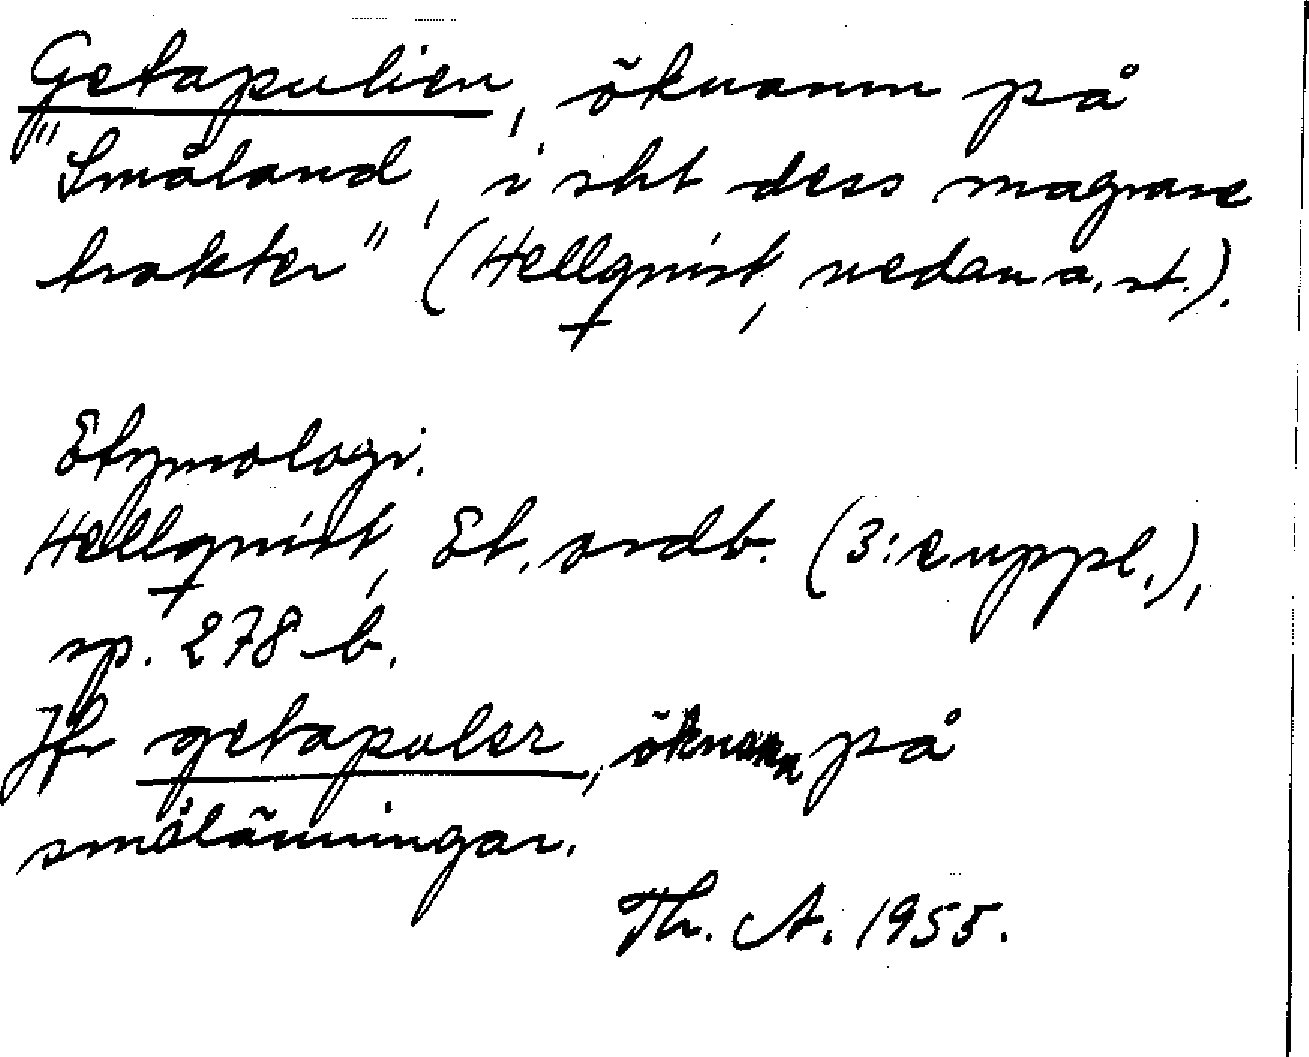 Getapulien, öknamn på
"Småland, i sht dess magrare
trakter" (Hellquist, nedan a. st.).
Etymologi.
Hellquist, Et. ordb. (3:e uppl.),
sp. 278 b.
Jfr getapuler, öknamn på
smålänningar.
Th. A. 1955.